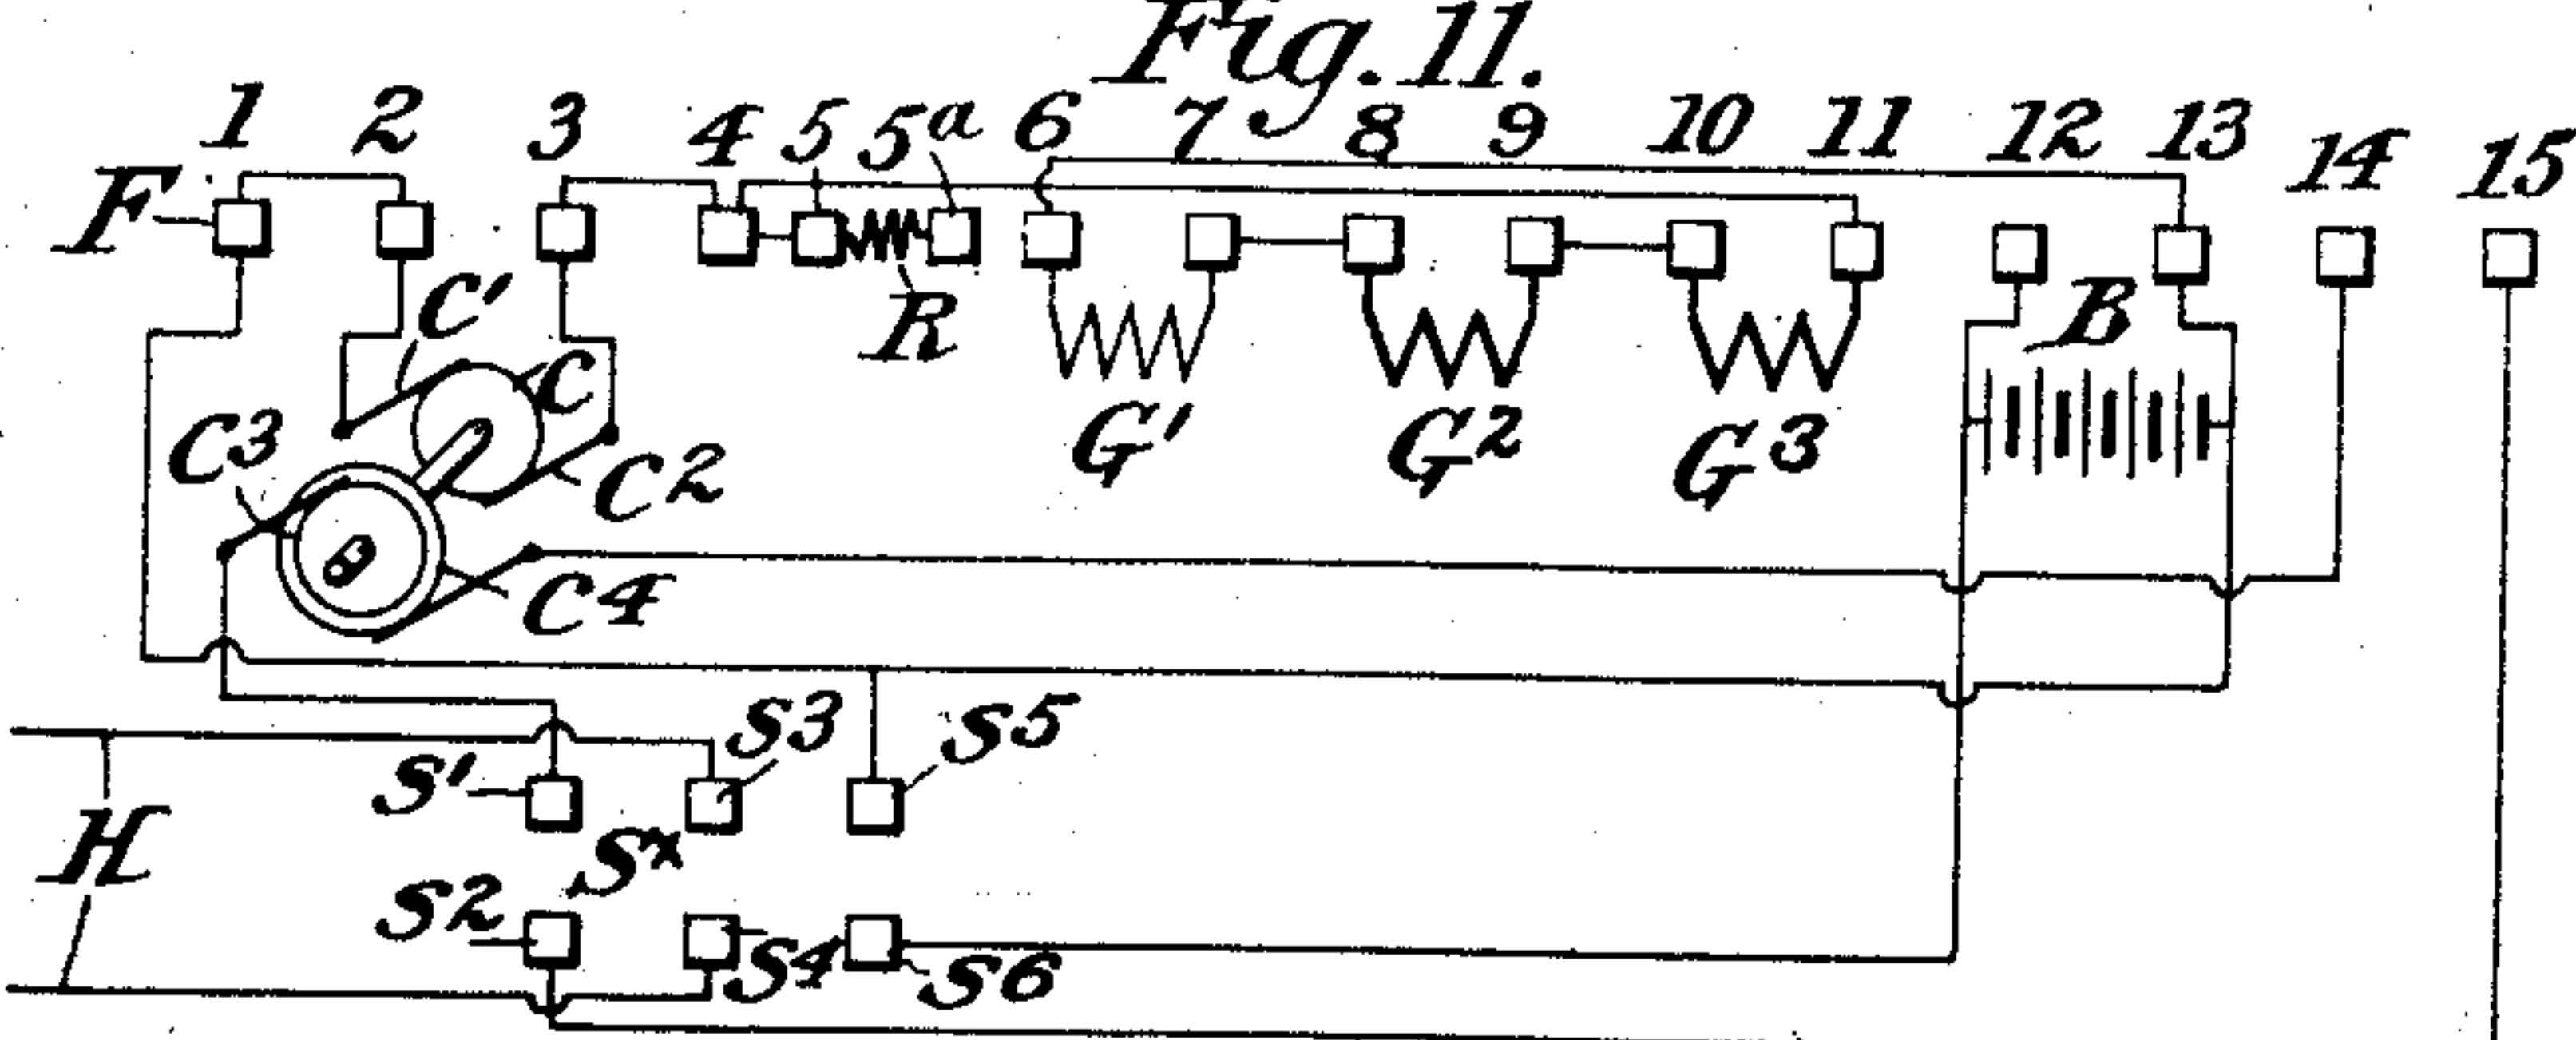 Fig. 11.
1 2 3 4 5 5a 6 7 8 9 10 11 12 13 14 15
F
C' C R B
C3 C2 G' G2 G3
C4
S' S3 S5
H Sx
S2 S4 S6